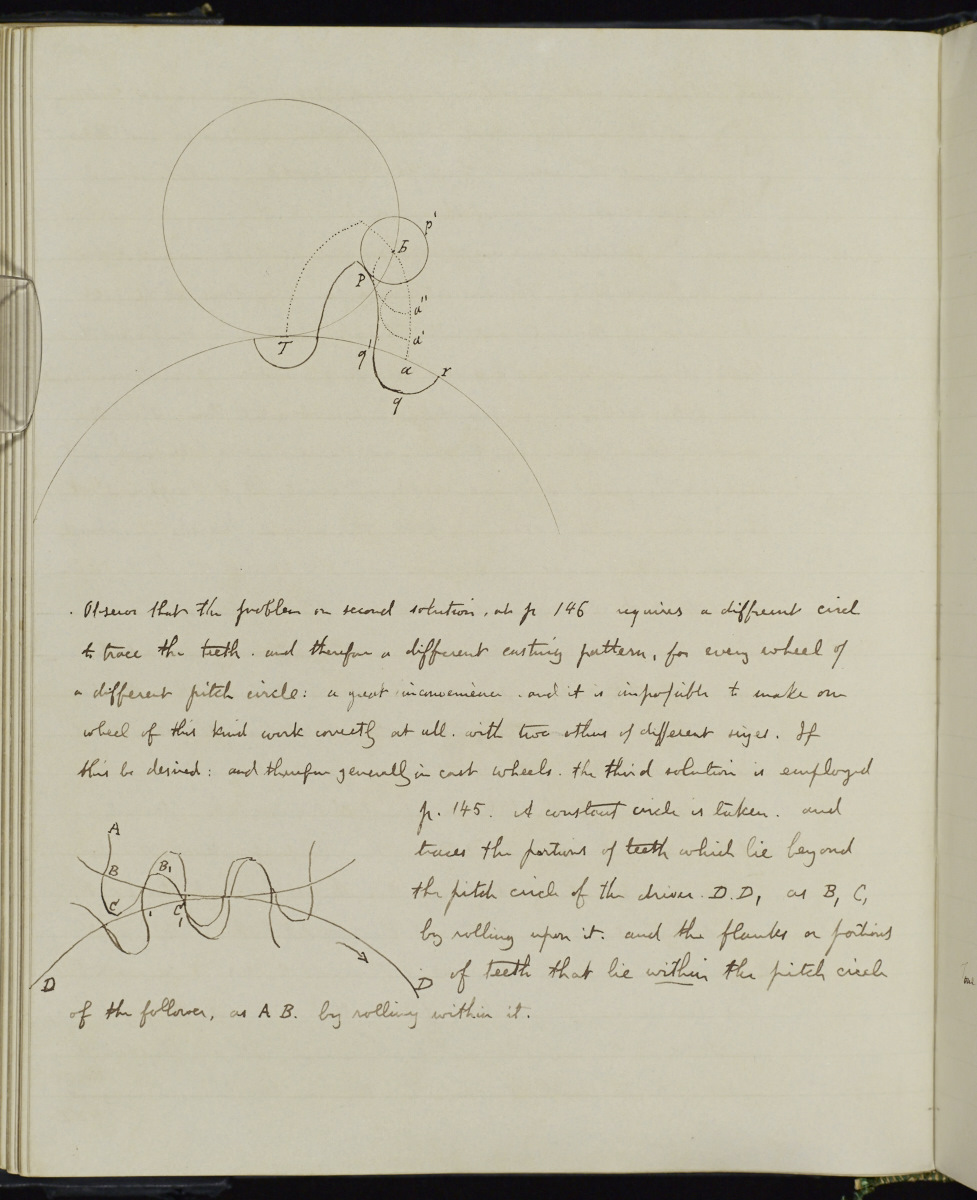 p'
b
P
a"
a'
T
q'
a
r
q
Observe that the problem on second solution, at p 146 requires a different circl
to trace the teeth. and therefore a different casting pattern, for every wheel of
a different pitch circle: a great inconvenience. and it is impossible to make one
wheel of this kind work correctly at all. with two others of different sizes. If
this be desired: and therefore generally in cast wheels. the third solution is employed
p. 145. A constant circle is taken. and
traces the portions of teeth which lie beyond
the pitch circle of the driver. D.D, as B, C,
by rolling upon it. and the flanks or portions
of teeth that lie within the pitch circle
of the follower, as A B. by rolling within it.
A
B
B,
C
C,
D
D